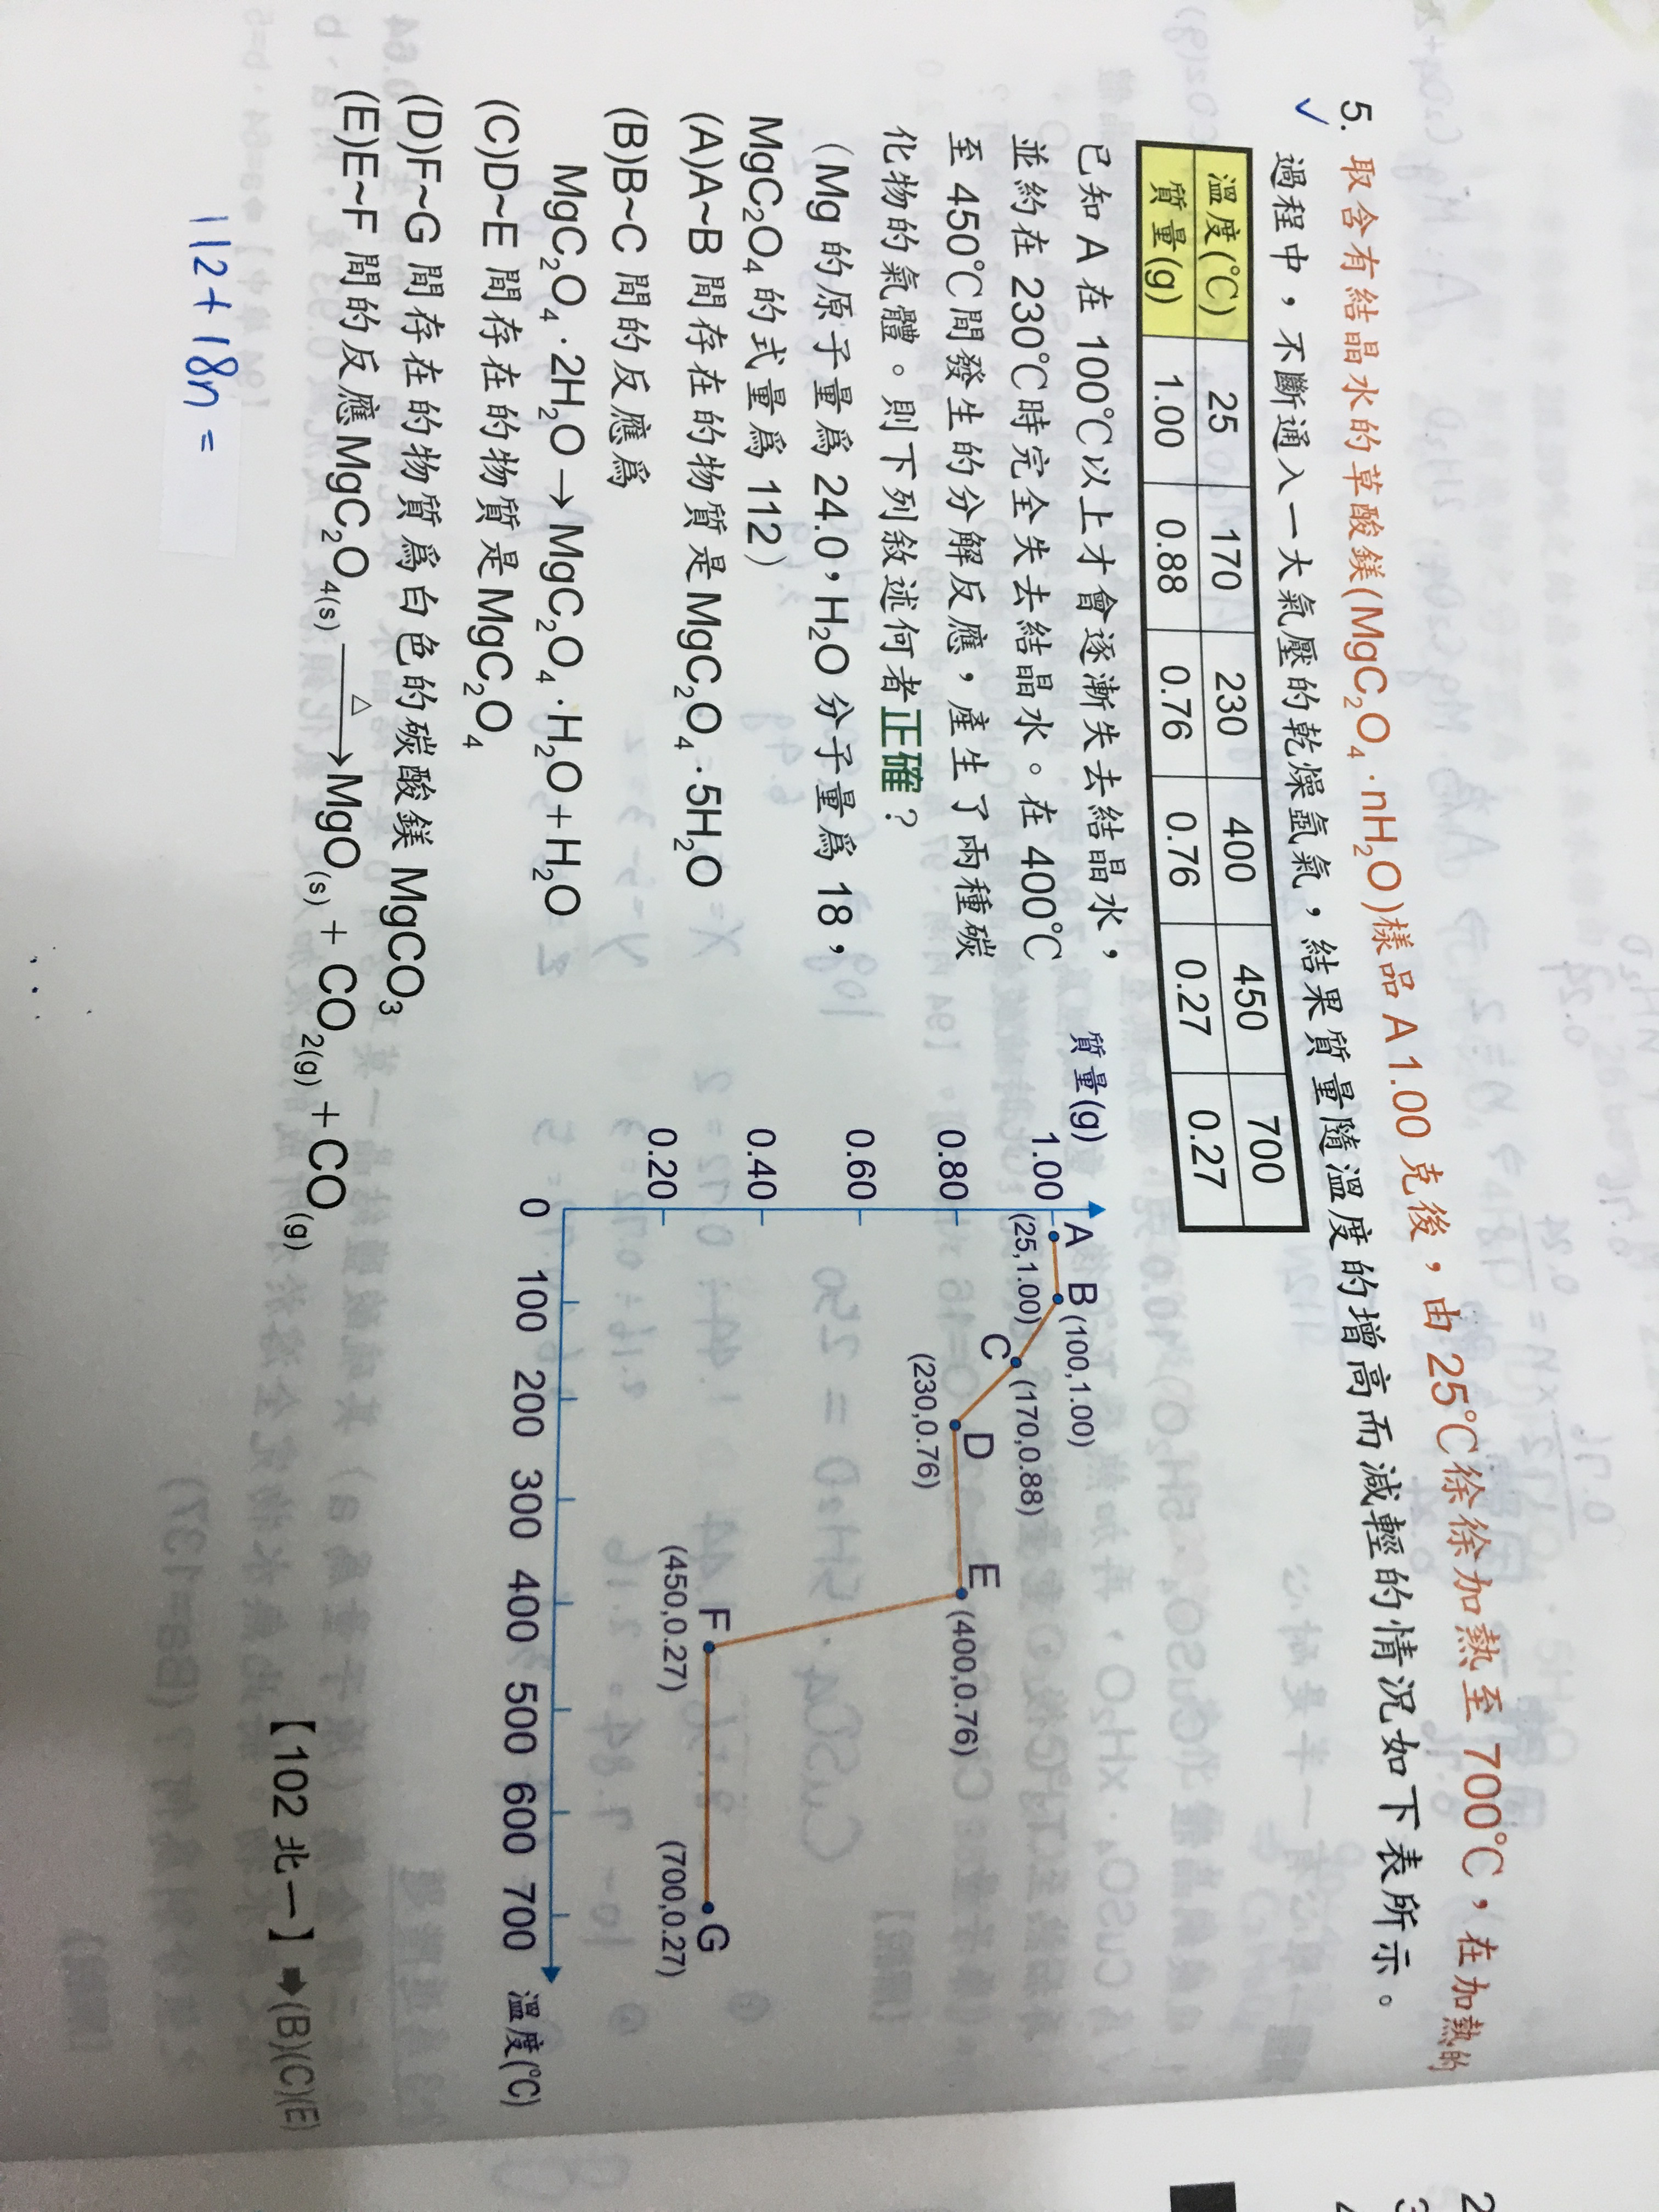 5. 取含有結晶水的草酸鎂(MgC₂O₄·nH₂O)樣品 A 1.00 克後，由 25℃徐徐加熱至 700℃，在加熱的
過程中，不斷通入一大氣壓的乾燥氬氣，結果質量隨溫度的增高而減輕的情況如下表所示。
溫度(℃) 25 170 230 400 450 700
質量(g) 1.00 0.88 0.76 0.76 0.27 0.27
已知 A 在 100℃以上才會逐漸失去結晶水，
並約在 230℃時完全失去結晶水。在 400℃
至 450℃間發生的分解反應，產生了兩種碳
化物的氣體。則下列敘述何者正確？
（Mg 的原子量為 24.0，H₂O 分子量為 18，
MgC₂O₄ 的式量為 112）
(A)A~B 間存在的物質是 MgC₂O₄·5H₂O
(B)B~C 間的反應為
MgC₂O₄·2H₂O→MgC₂O₄·H₂O+H₂O
(C)D~E 間存在的物質是 MgC₂O₄
(D)F~G 間存在的物質為白色的碳酸鎂 MgCO₃
(E)E~F 間的反應 MgC₂O₄(s) △→ MgO(s) + CO₂(g) + CO(g)
【102 北一】➡(B)(C)(E)
質量(g)
1.00
0.80
0.60
0.40
0.20
0 100 200 300 400 500 600 700 溫度(℃)
A
(25,1.00)
B
(100,1.00)
C
(170,0.88)
D
(230,0.76)
E
(400,0.76)
F
(450,0.27)
G
(700,0.27)
112+18n =